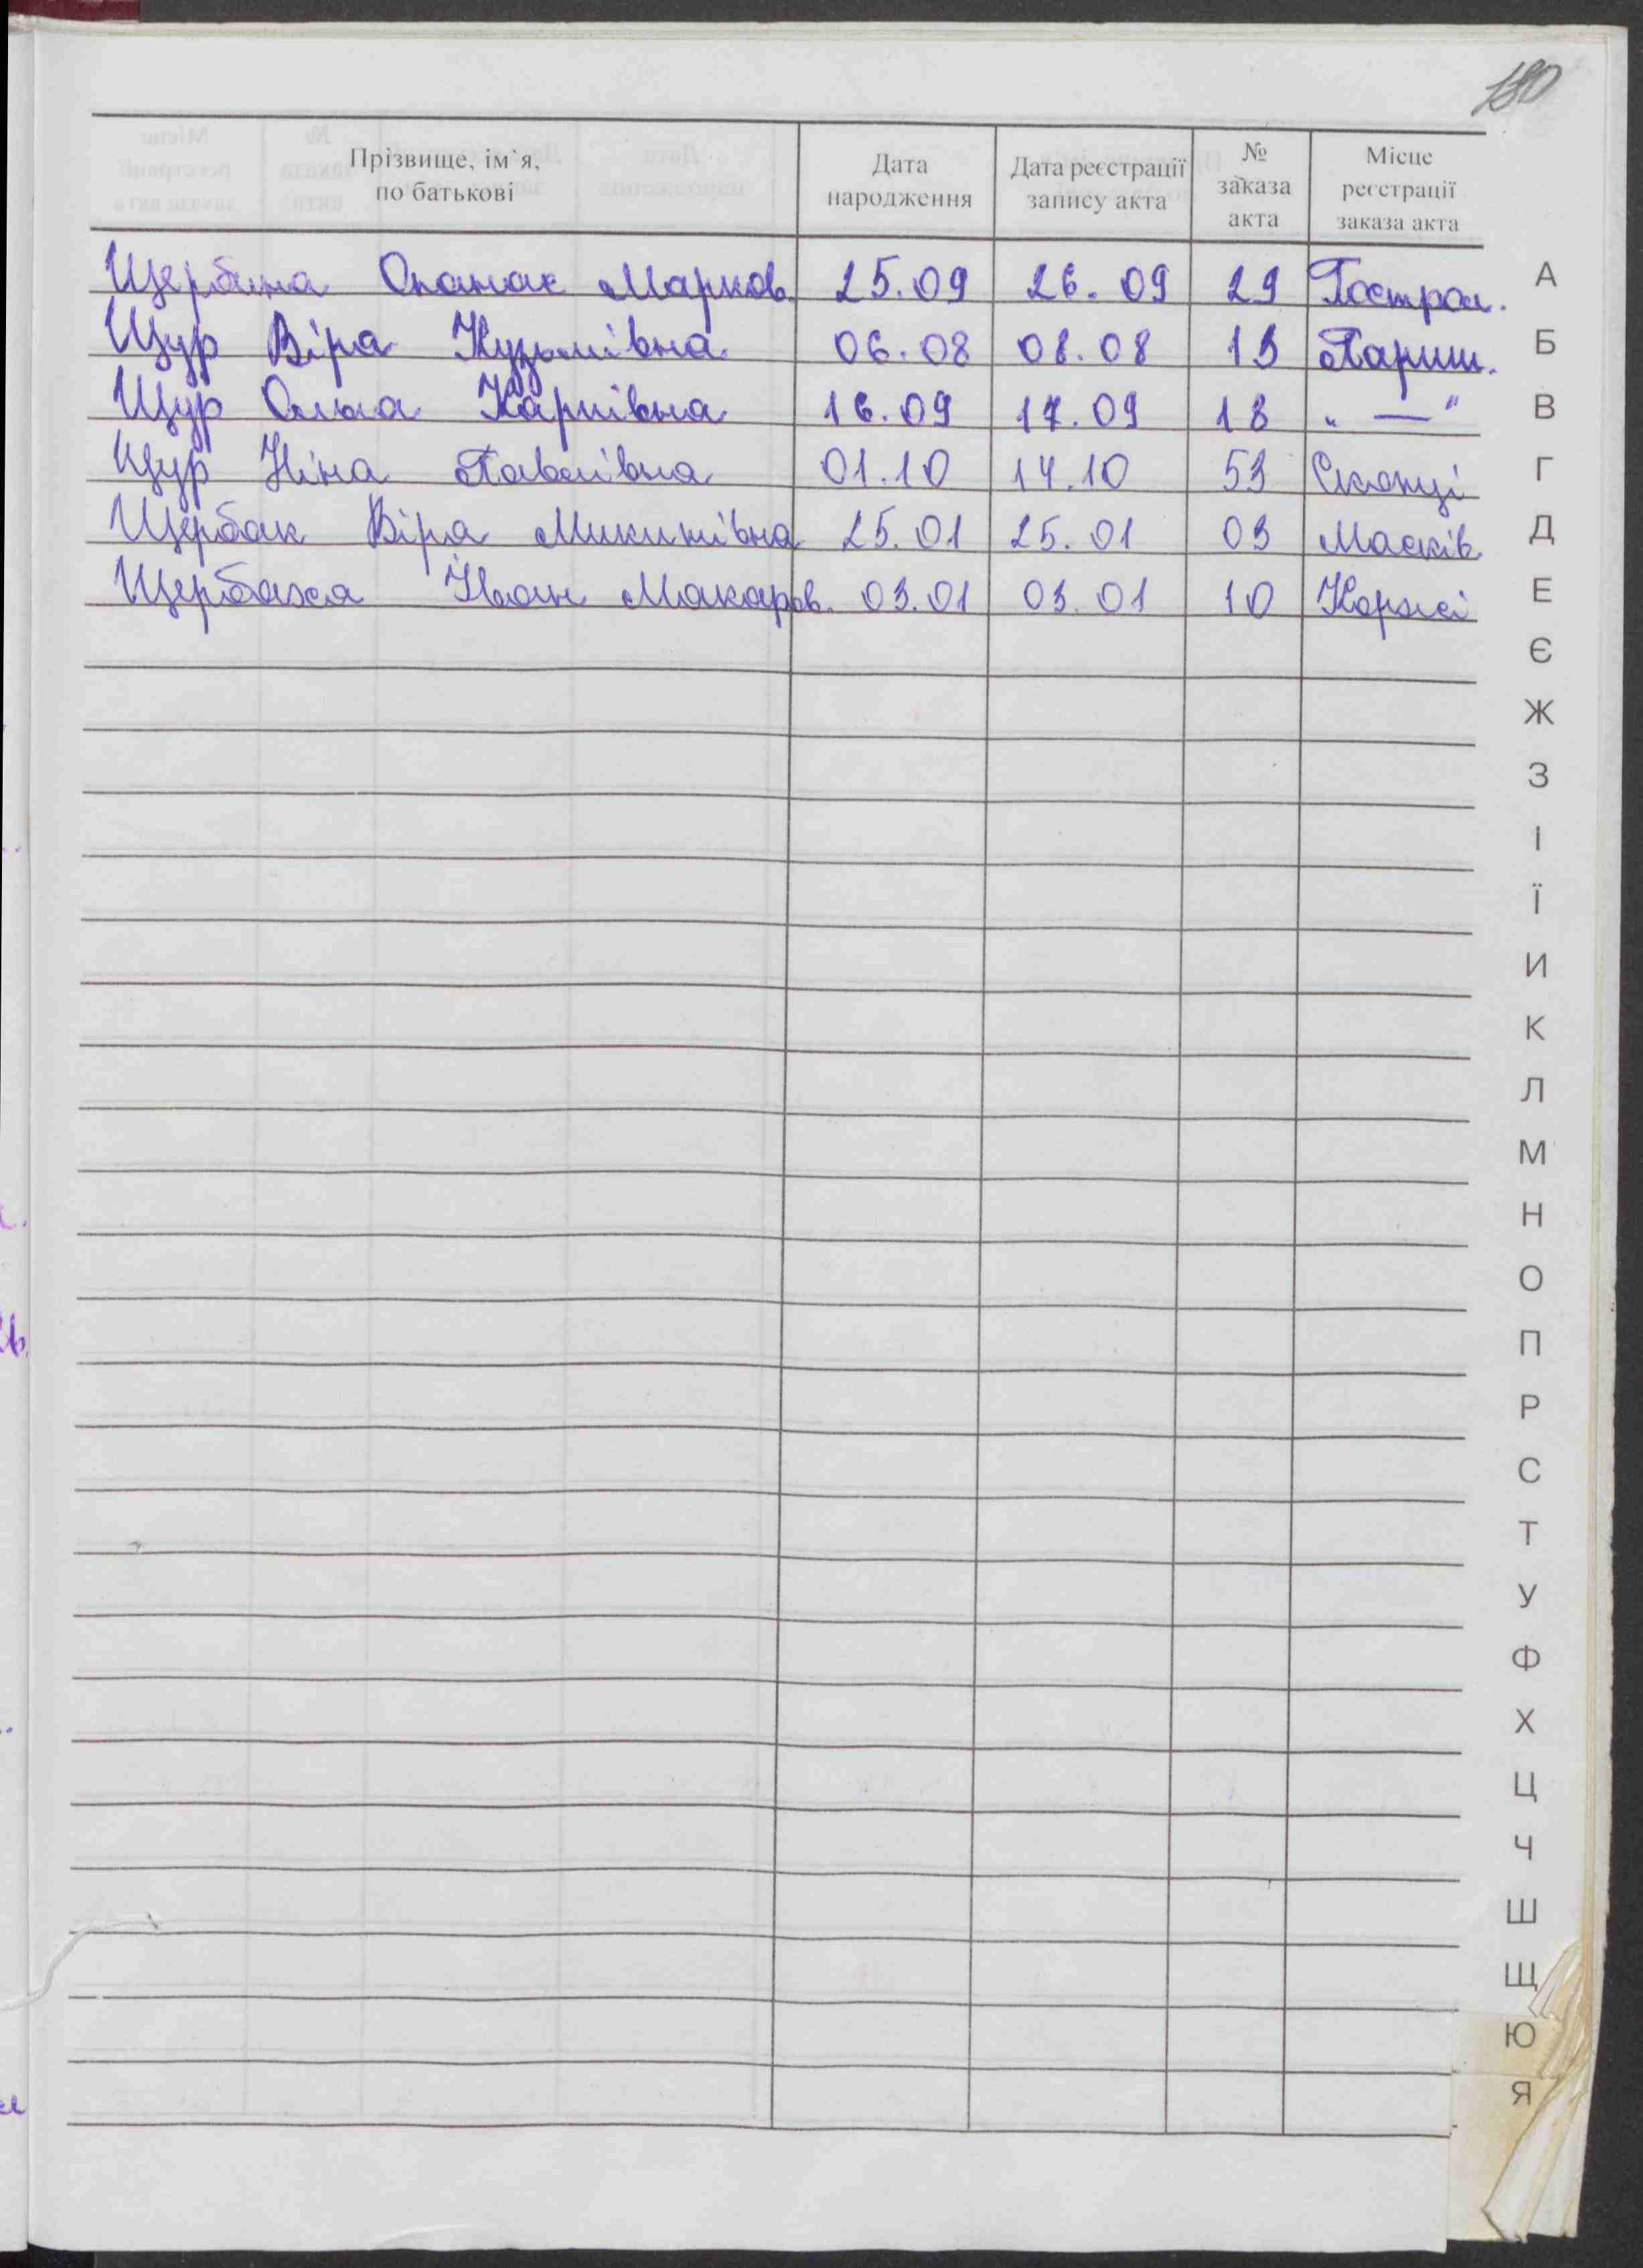 130
Прізвище, ім`я, по батькові Дата народження Дата реєстрації запису акта № заказа акта Місце реєстрації заказа акта
Щербина Опанас Марков. 25.09 26.09 29 Гострол.
Щур Віра Кузьмівна 06.08 08.08 13 Париш.
Щур Ольга Карпівна 16.09 17.09 18 „ — "
Щур Ніна Павлівна 01.10 14.10 53 Сканці
Щербак Віра Микитівна 25.01 25.01 03 Масків.
Щербаха Іван Макаров. 03.01 03.01 10 Коржі
А
Б
В
Г
Д
Е
Є
Ж
З
І
Ї
И
К
Л
М
Н
О
П
Р
С
Т
У
Ф
Х
Ц
Ч
Ш
Щ
Ю
Я